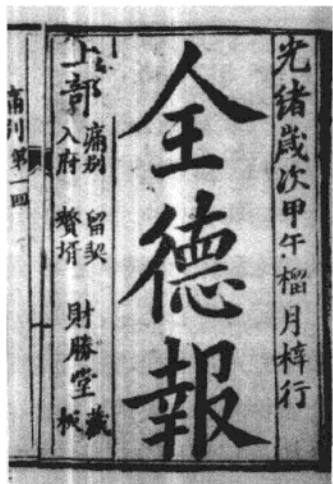 光緒歲次甲午榴月梓行
全德報
上部
痛別 留契
入府 贅壻
財勝堂藏板
痛別 第一回